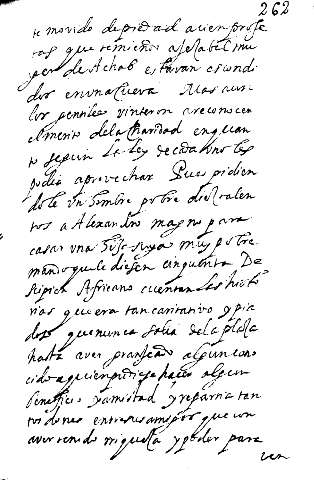 262
te movido de piedad a cien profe
tas que temiendo a Jezabel mu
ger de Achab estavan escondi
dos en una cueva Mas aun
los gentiles vinieron a reconocer
el merito de la charidad en quan
to segun la ley de cada uno les
podia aprovechar Pues pidien
dole un hombre pobre diez talen
tos a Alexandro magno para
casar una hija suya muy pobre
mando que le diesen cinquenta De
Scipion Africano cuentan las histo
rias que era tan caritativo y pia
doso que nunca salia de la plaza
hasta aver granjeado algun cono
cido a quien pudiese hacer algun
beneficio y amistad y repartia tan
tos dones entre sus amigos que con
aver tenido riqueza y poder para
ven